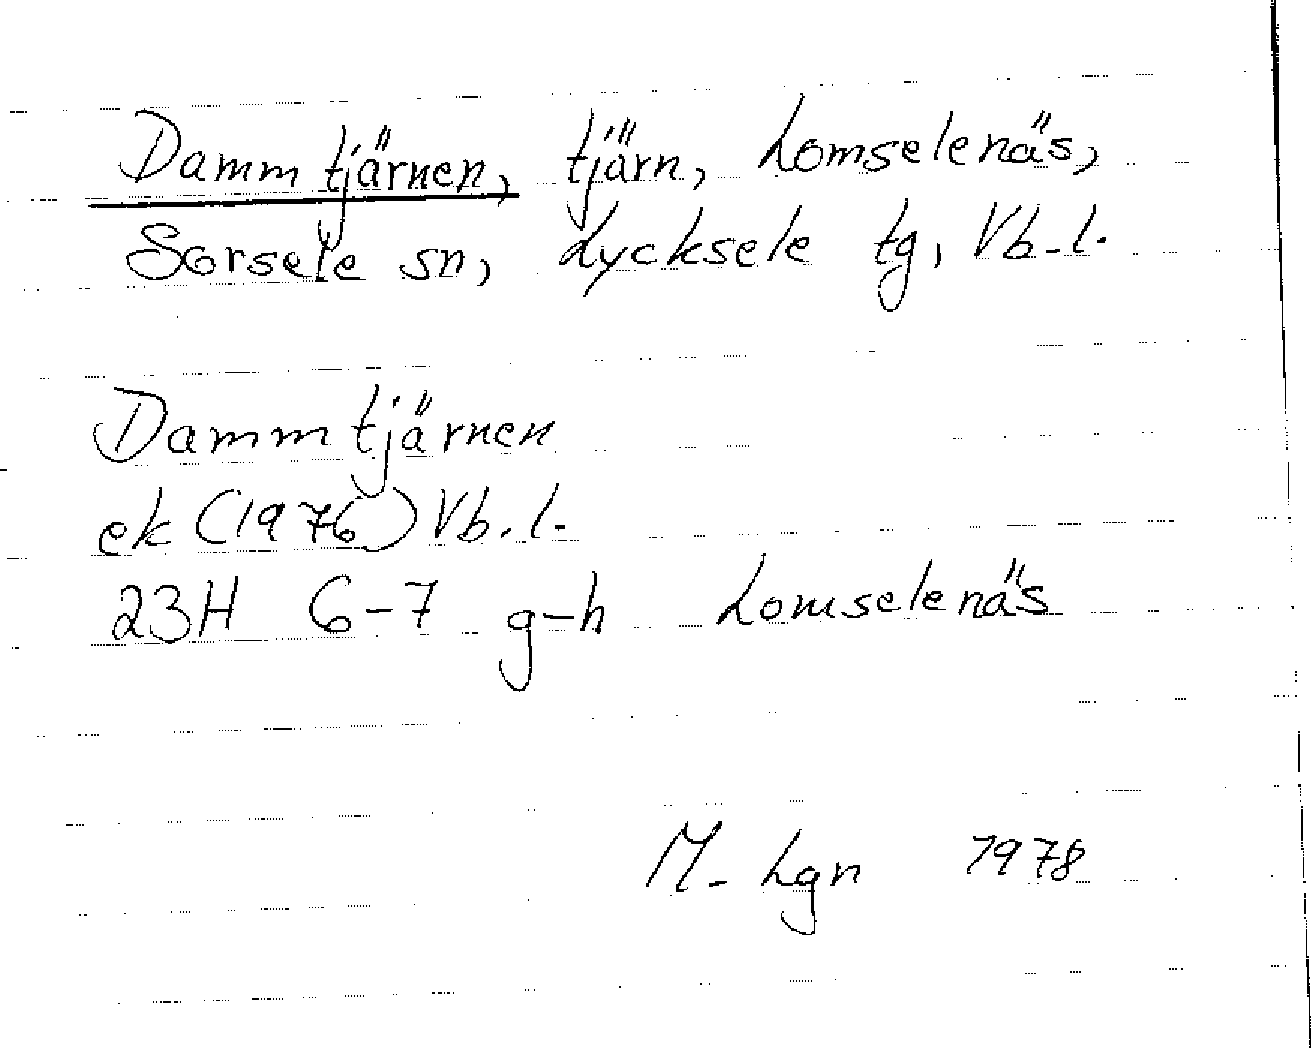 Dammtjärnen, tjärn, Lomselenäs,
Sorsele sn, Lycksele tg, Vb.l.
Dammtjärnen
ek (1976) Vb.l.
23H 6-7 g-h Lomselenäs
M-Lgn 1978